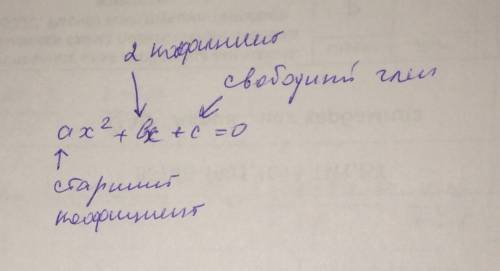 2 коэфициент
свободный член
ax² + bx + c = 0
старший
коэфициент